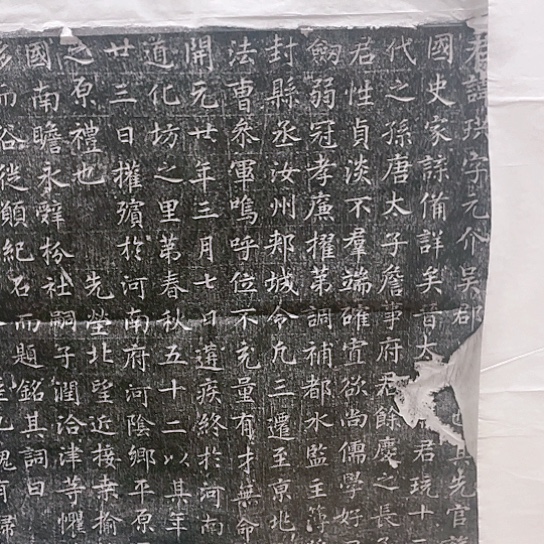 君諱琇字元介吳郡
國史家諜備詳矣昔太君琓十二
代之孫唐太子詹事府君餘慶之長子
君性貞淡不羣端確寡欲尚儒學好
劒弱冠孝廉擢第調補都水監主簿
封縣丞汝州郟城令凡三遷至京兆
法曹叅軍嗚呼位不充量有才無命
開元廿年三月七日遘疾終於河南
道化坊之里第春秋五十二以其年
廿三日權殯於河南府河陰鄉平原
之原禮也先塋北望近接桑榆
國南瞻永辥枌社嗣子潤洽津等懼
而谷從願紀石而題銘其詞曰